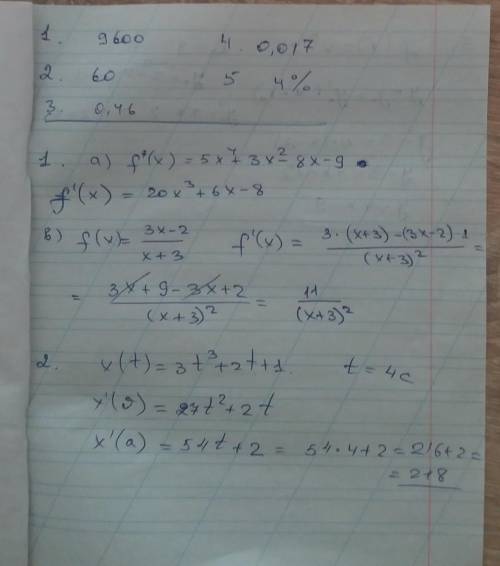 1. 9600 4. 0,017
2. 60 5 4%
3. 0,46
1. а) f'(x) = 5x⁷ + 3x² - 8x - 9
f'(x) = 20x³ + 6x - 8
в) f(x) = (3x-2)/(x+3) f'(x) = (3·(x+3) - (3x-2)·1)/(x+3)² =
= (3x + 9 - 3x + 2)/(x+3)² = 11/(x+3)²
2. x(t) = 3t³ + 2t + 1. t = 4с
x'(υ) = 27t² + 2t
x'(a) = 54t + 2 = 54·4 + 2 = 216 + 2 =
= 218